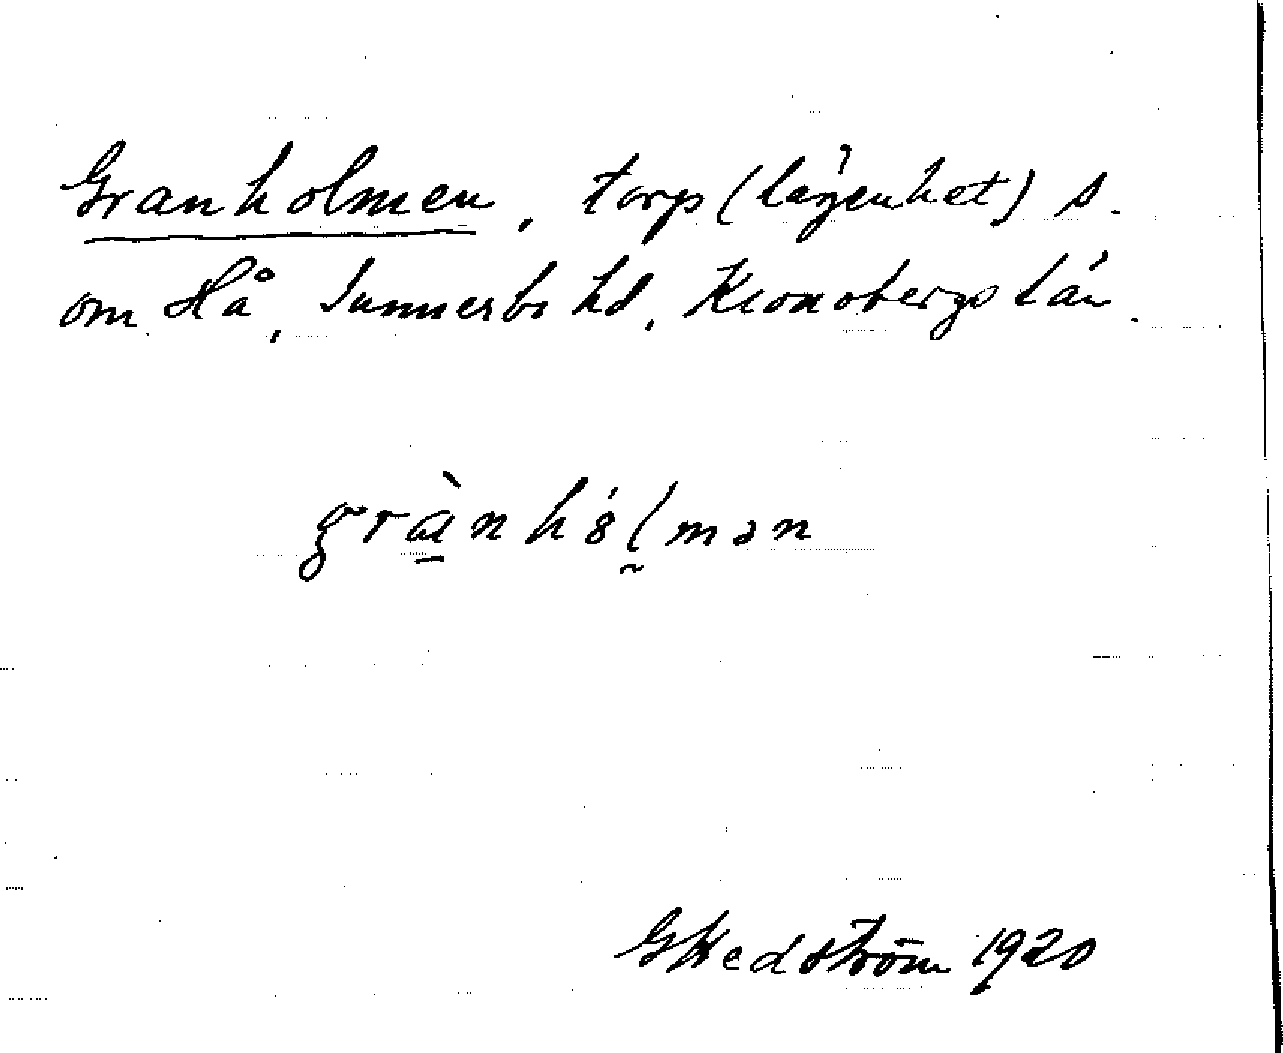 Granholmen, torp (lägenhet) s.
om Hå, Sunnerbo hd, Kronobergs län.
grànhólmən
G Hedström 1920